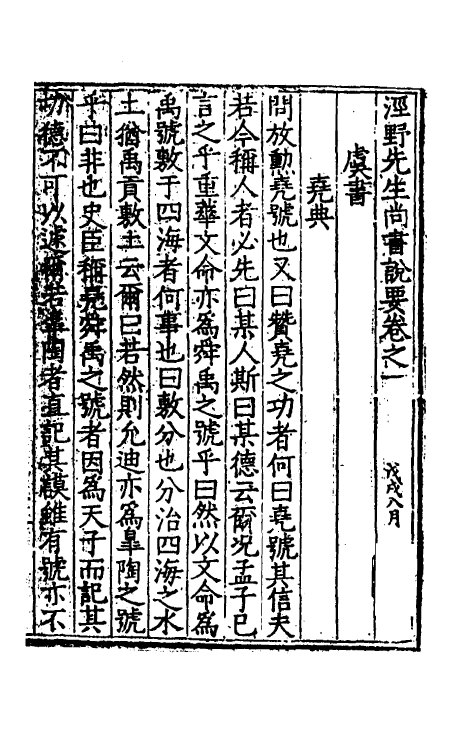 涇野先生尚書說要卷之一 戊戌八月
虞書
堯典
問放勳堯號也又曰贊堯之功者何曰堯號其信夫
若今稱人者必先曰某人斯曰某德云爾况孟子已
言之乎重華文命亦為舜禹之號乎曰然以文命為
禹號敷于四海者何事也曰敷分也分治四海之水
土猶禹貢敷土云爾曰若然則允迪亦為臯陶之號
乎曰非也史臣稱堯舜禹之號者因為天子而記其
功德不可以述稱若臯陶者直記其謨雖有號亦不